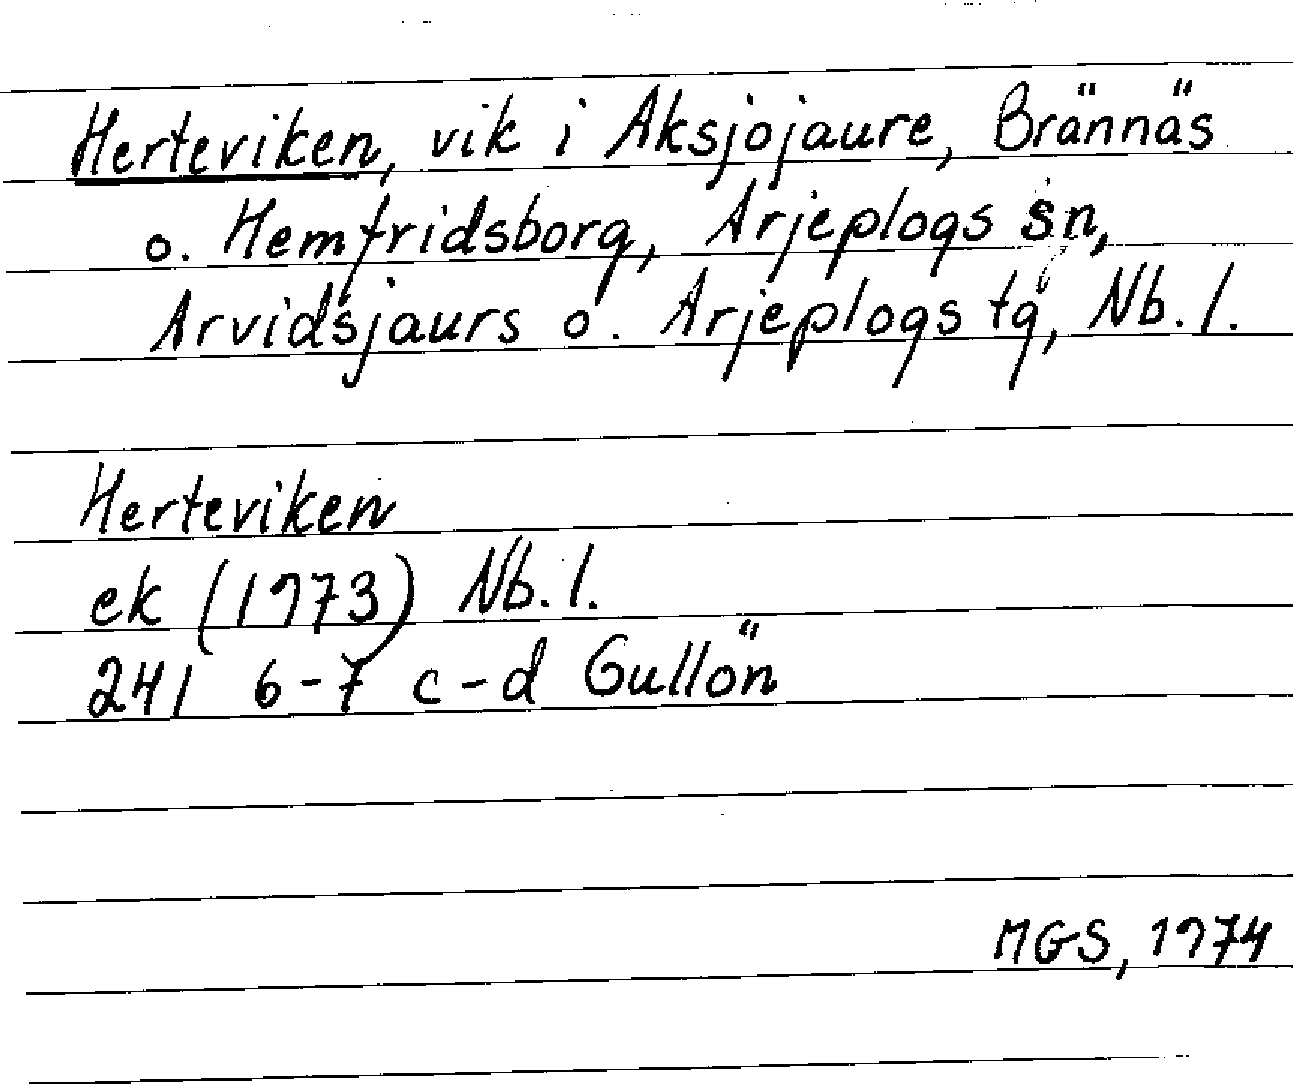 Herteviken, vik i Aksjojaure, Brännäs
o. Hemfridsborg, Arjeplogs sn,
Arvidsjaurs o. Arjeplogs tg, Nb. l.
Herteviken
ek (1973) Nb. l.
241 6-7 c-d Gullön
MGS, 1974